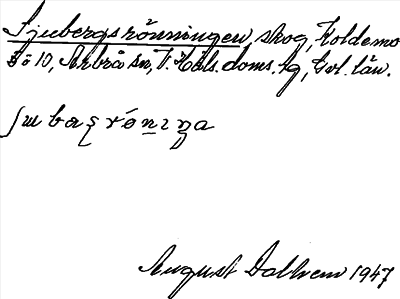 Sjubergsrönningen, skog, Koldemo
3ö10, Arbrå sn, V. Häls. doms. tg, Gvl. län.
ʃɯbaʂrónɪŋa
August Dalhem 1947